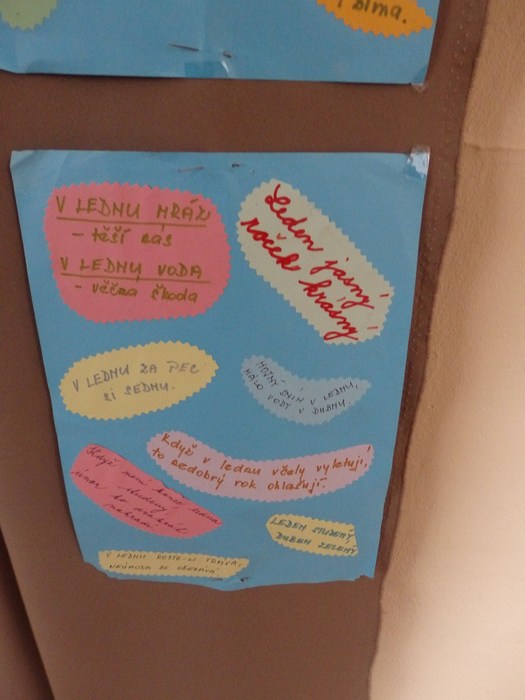 zima.
V LEDNU MRÁZ
- těší nás
V LEDNU VODA
- věčná škoda
Leden jasný,
roček krásný
V LEDNU ZA PEC
SI SEDNU.
HOJNÝ SNÍH V LEDNU,
MÁLO VODY V DUBNU.
Když v lednu včely vyletují,
to nedobrý rok ohlašují.
Když není konec
studený,
únor to
LEDEN STUDENÝ
DUBEN ZELENÝ
V LEDNU ROSTE-LI TRÁVA,
NEÚRODA SE